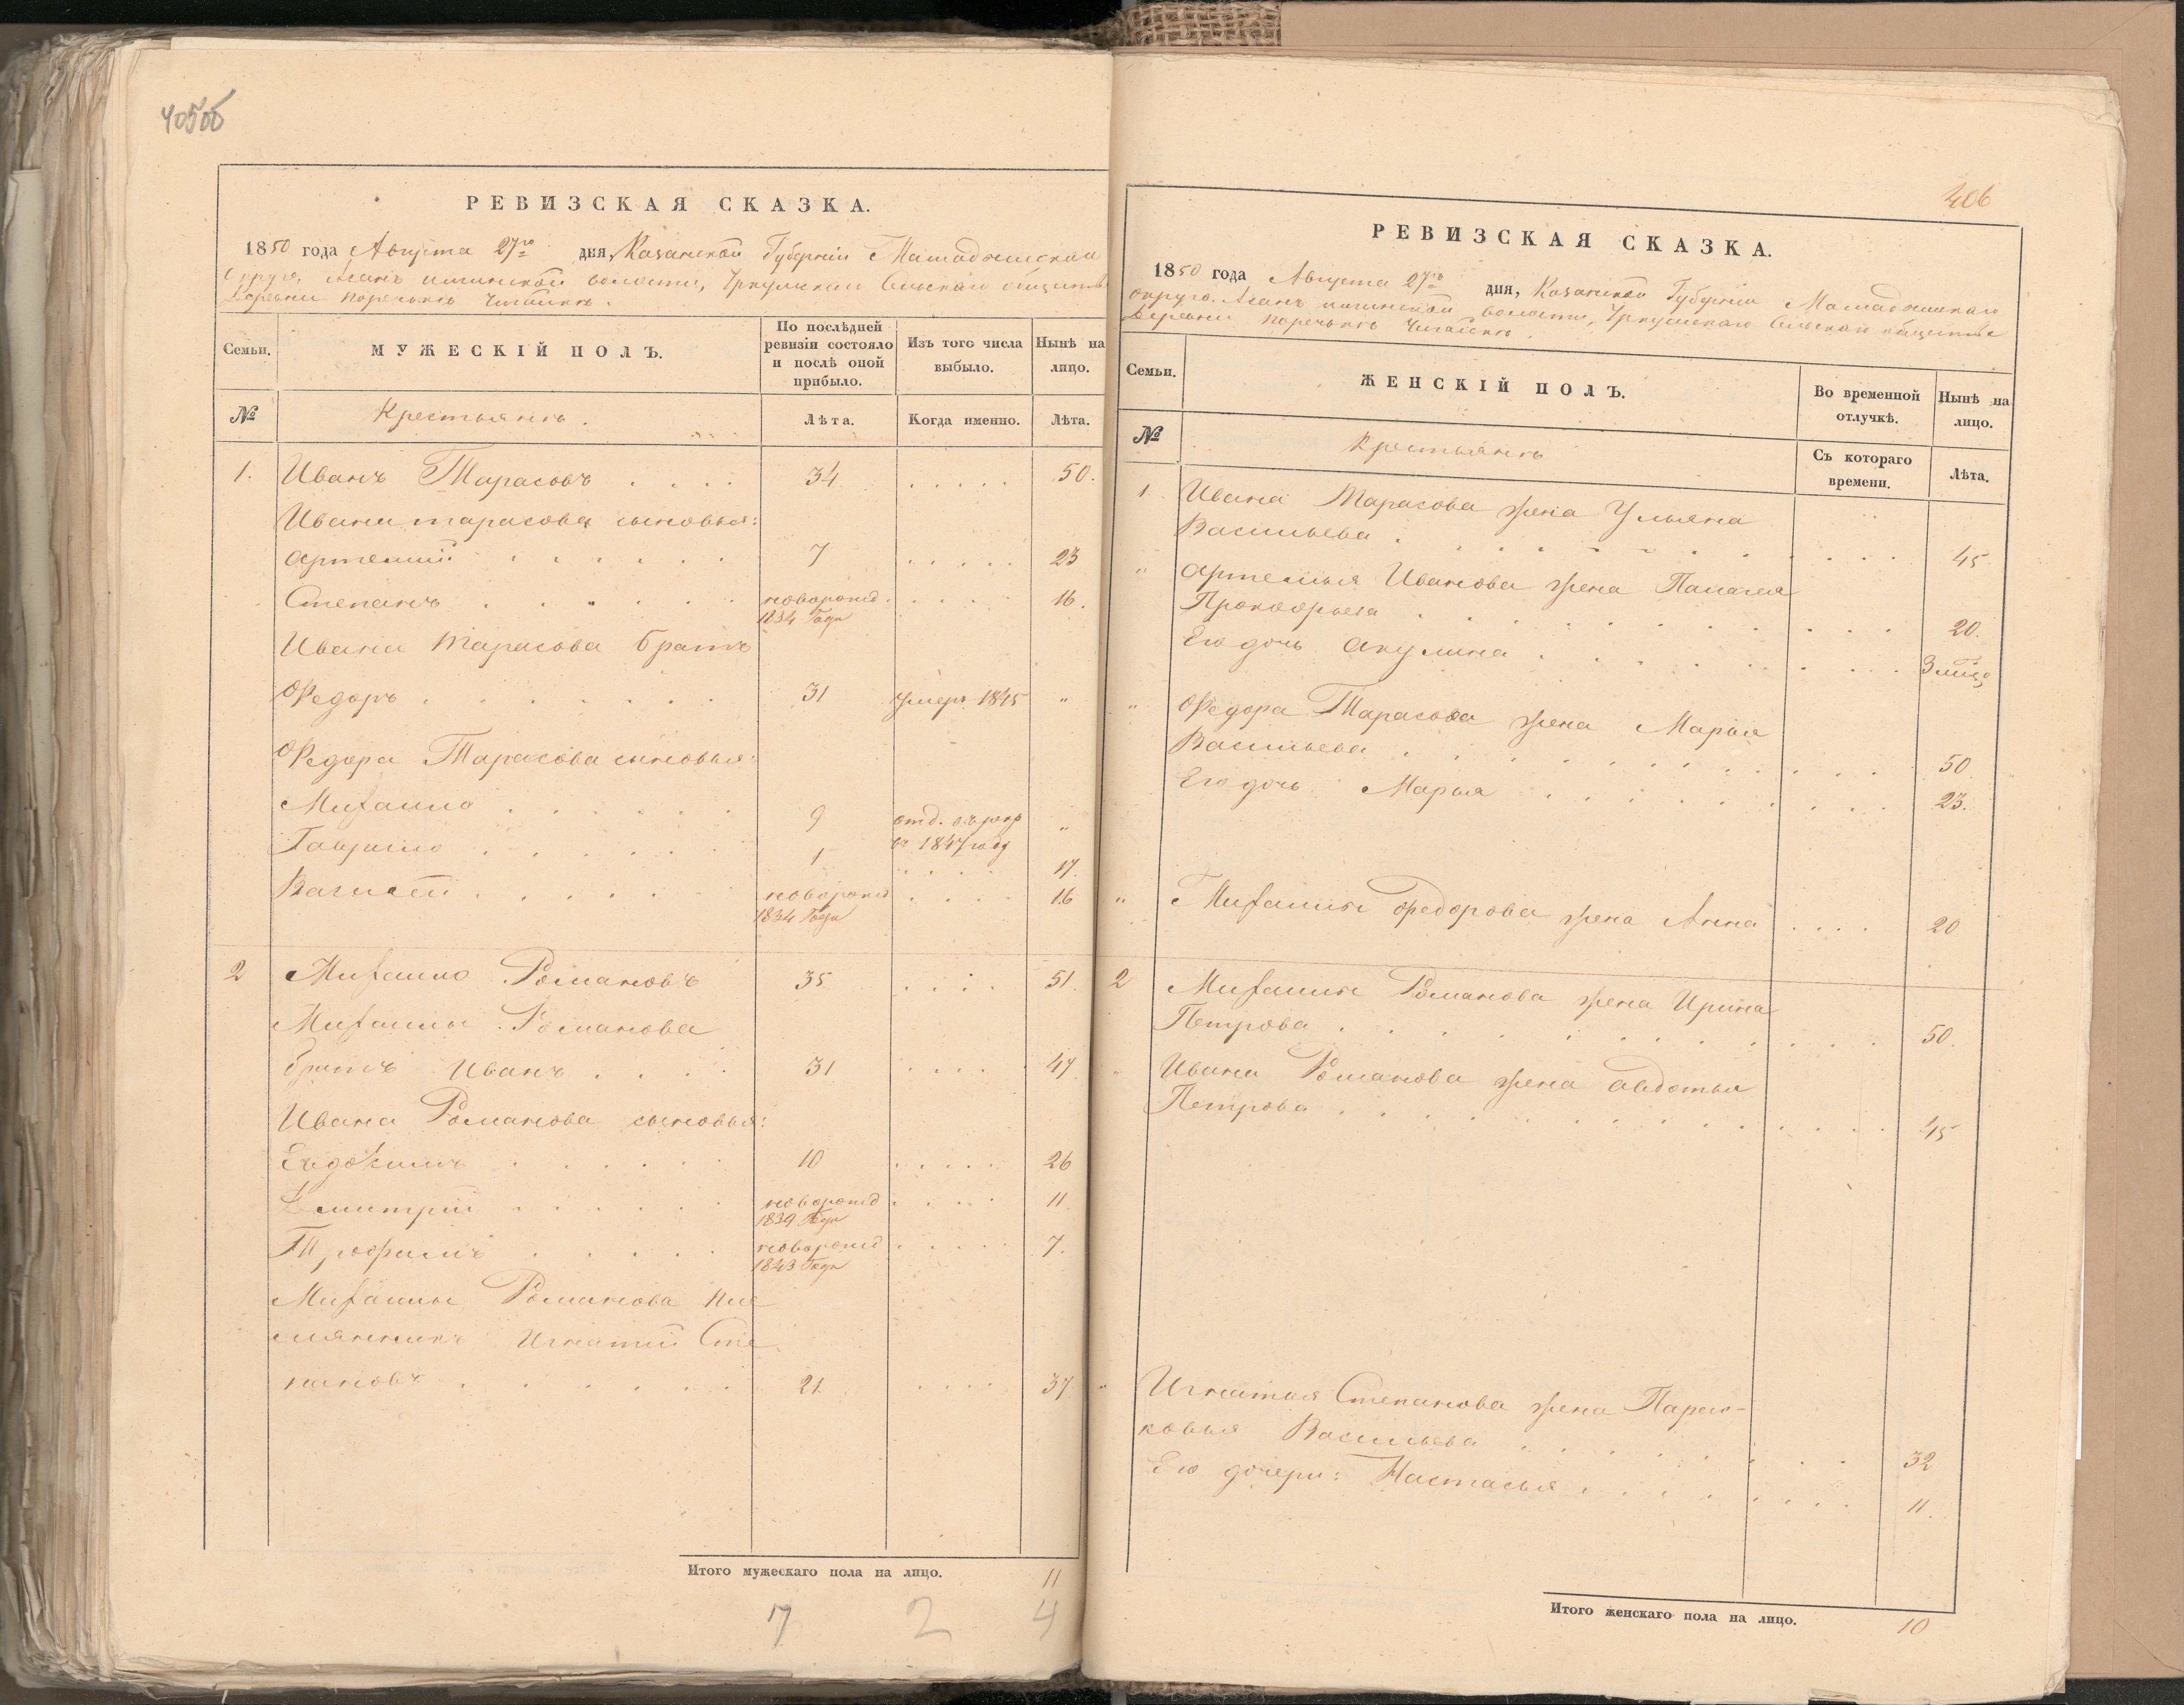 405об
РЕВИЗСКАЯ СКАЗКА.
1850 года Августа 27го дня, Казанской Губернiи Мамадышскаго
Округа, волости, Сельскаго общества
Деревни Поречьногъ
Семьи.
МУЖЕСКІЙ ПОЛЪ.
По послѣдней ревизіи состояло и послѣ оной прибыло.
Изъ того числа выбыло.
Нынѣ на лицо.
№
Крестьянъ.
Лѣта.
Когда именно.
Лѣта.
1. Иванъ Тарасовъ . . . . 34 . . . . . 50.
Ивана тарасова сыновья:
Артемий . . . . . . 7 . . . . . 23
Степанъ . . . . . . новорожд. . . . . 16.
1834 Года
Ивана Тарасова братъ
Федоръ . . . . . . . 31 умеръ 1845 "
Федора Тарасова сыновья:
Михайло . . . . . . 9 отд. въ рекр "
въ 1847 году
Гаврило . . . . . . 1 . . . . 17.
Василей . . . . . . новорожд . . . . 16
1834 Года
2 Михайло Романовъ 35 . . . . 51.
Михайлы Романова
братъ Иванъ . . . . 31 . . . . 47
Ивана Романова сыновья:
Евдокимъ . . . . . . 10 . . . . . 26
Дмитрiй . . . . . . новорожд . . . . 11.
1839 Года
Трофимъ . . . . . новорожд . . . . . 7.
1843 Года
Михайлы Романова пле
мянникъ Игнатiй Сте
пановъ . . . . . . . 21. . . . . 37.
Итого мужескаго пола на лицо. 11
7 2 4
406
РЕВИЗСКАЯ СКАЗКА.
1850 года Августа 27го дня, Казанской Губернiи Мамадышскаго
округа. волости, Сельскаго общества
Деревни Поречьногъ
Семьи.
ЖЕНСКІЙ ПОЛЪ.
Во временной отлучкѣ.
Нынѣ на лицо.
№
Крестьянъ
Съ котораго времени.
Лѣта.
1. Ивана Тарасова жена Ульяна
Васильева . . . . . . . . . . . . 45
" Артемья Иванова жена Палагея
Прокофьева . . . . . . . . . . . 20.
Его дочь Акулина . . . . . . . . . 3 мѣс
" Федора Тарасова жена Марья
Васильева . . . . . . . . . . . . 50.
Его дочь Марья . . . . . . . . . 23.
" Михайлы Федорова жена Анна . . . . 20
2 Михайлы Романова жена Ирина
Петрова . . . . . . . . . . . . 50.
" Ивана Романова жена Авдотья
Петрова . . . . . . . . . . . . . 45
" Игнатья Степанова жена Парас-
ковья Васильева . . . . . . . . 32
Его дочери: Настасья . . . . . . . . 11.
Итого женскаго пола на лицо. 10